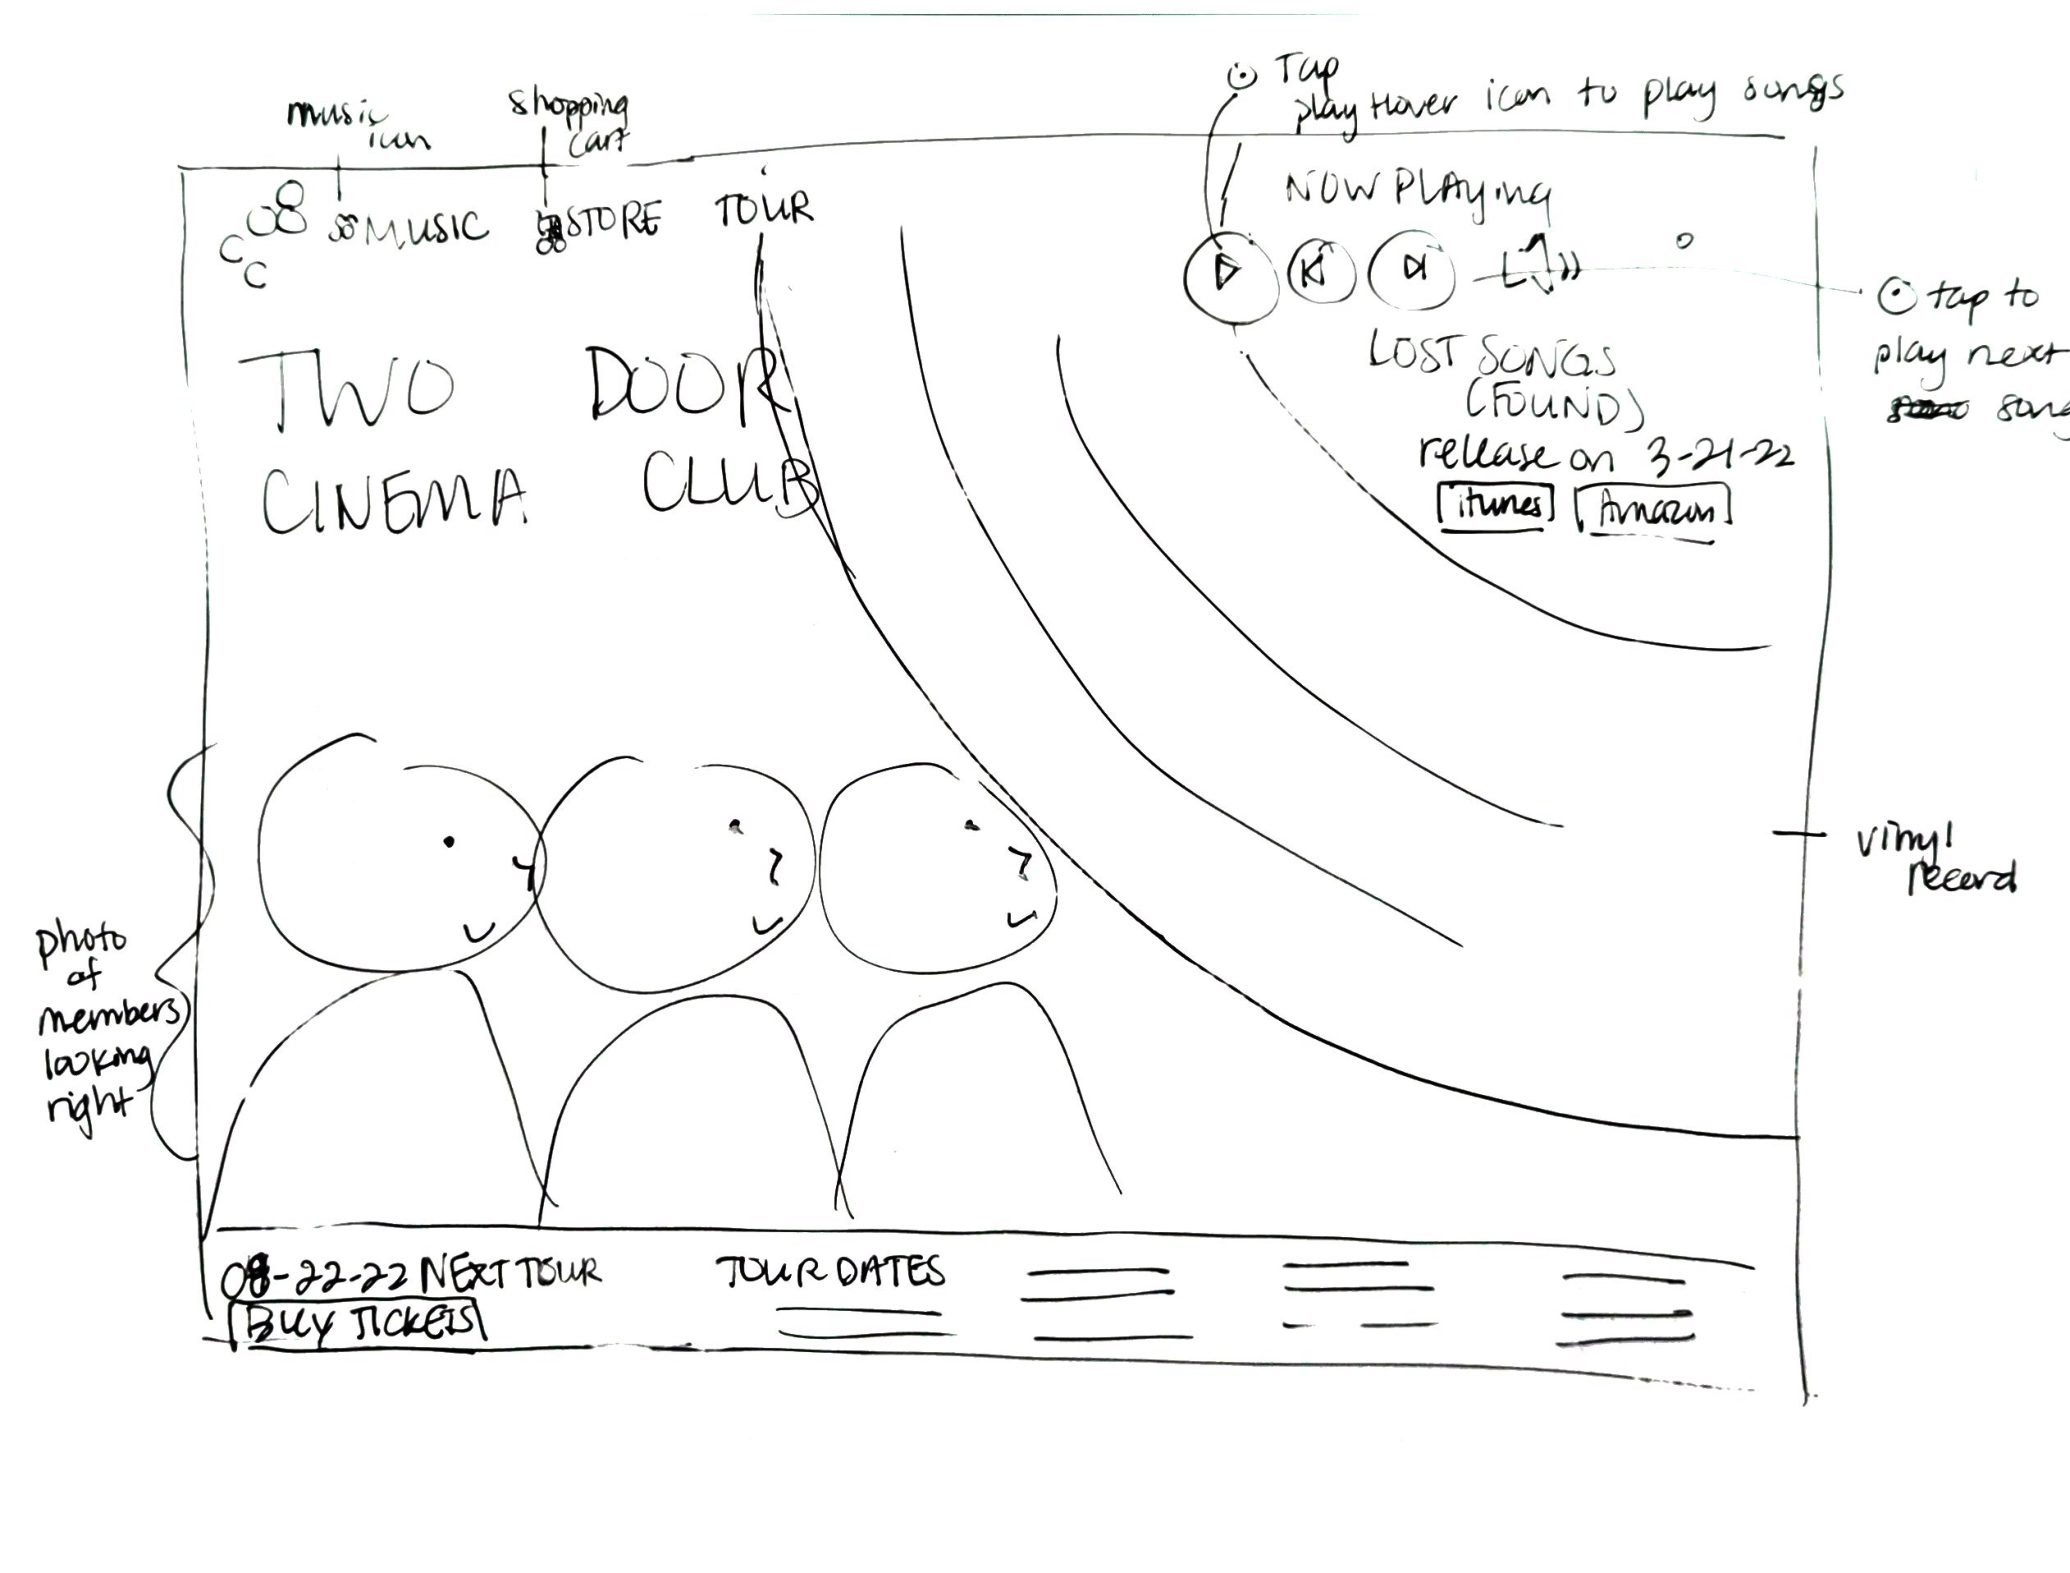 music
icon
shopping
cart
Tap
play Hover icon to play songs
MUSIC
STORE
TOUR
NOW PLAYing
TWO DOOR
CINEMA CLUB
LOST SONGS
(FOUND)
release on 3-21-22
itunes
Amazon
tap to
play next
song
vinyl
record
photo
of
members
looking
right
08-22-22 NEXT TOUR
BUY TICKETS
TOUR DATES